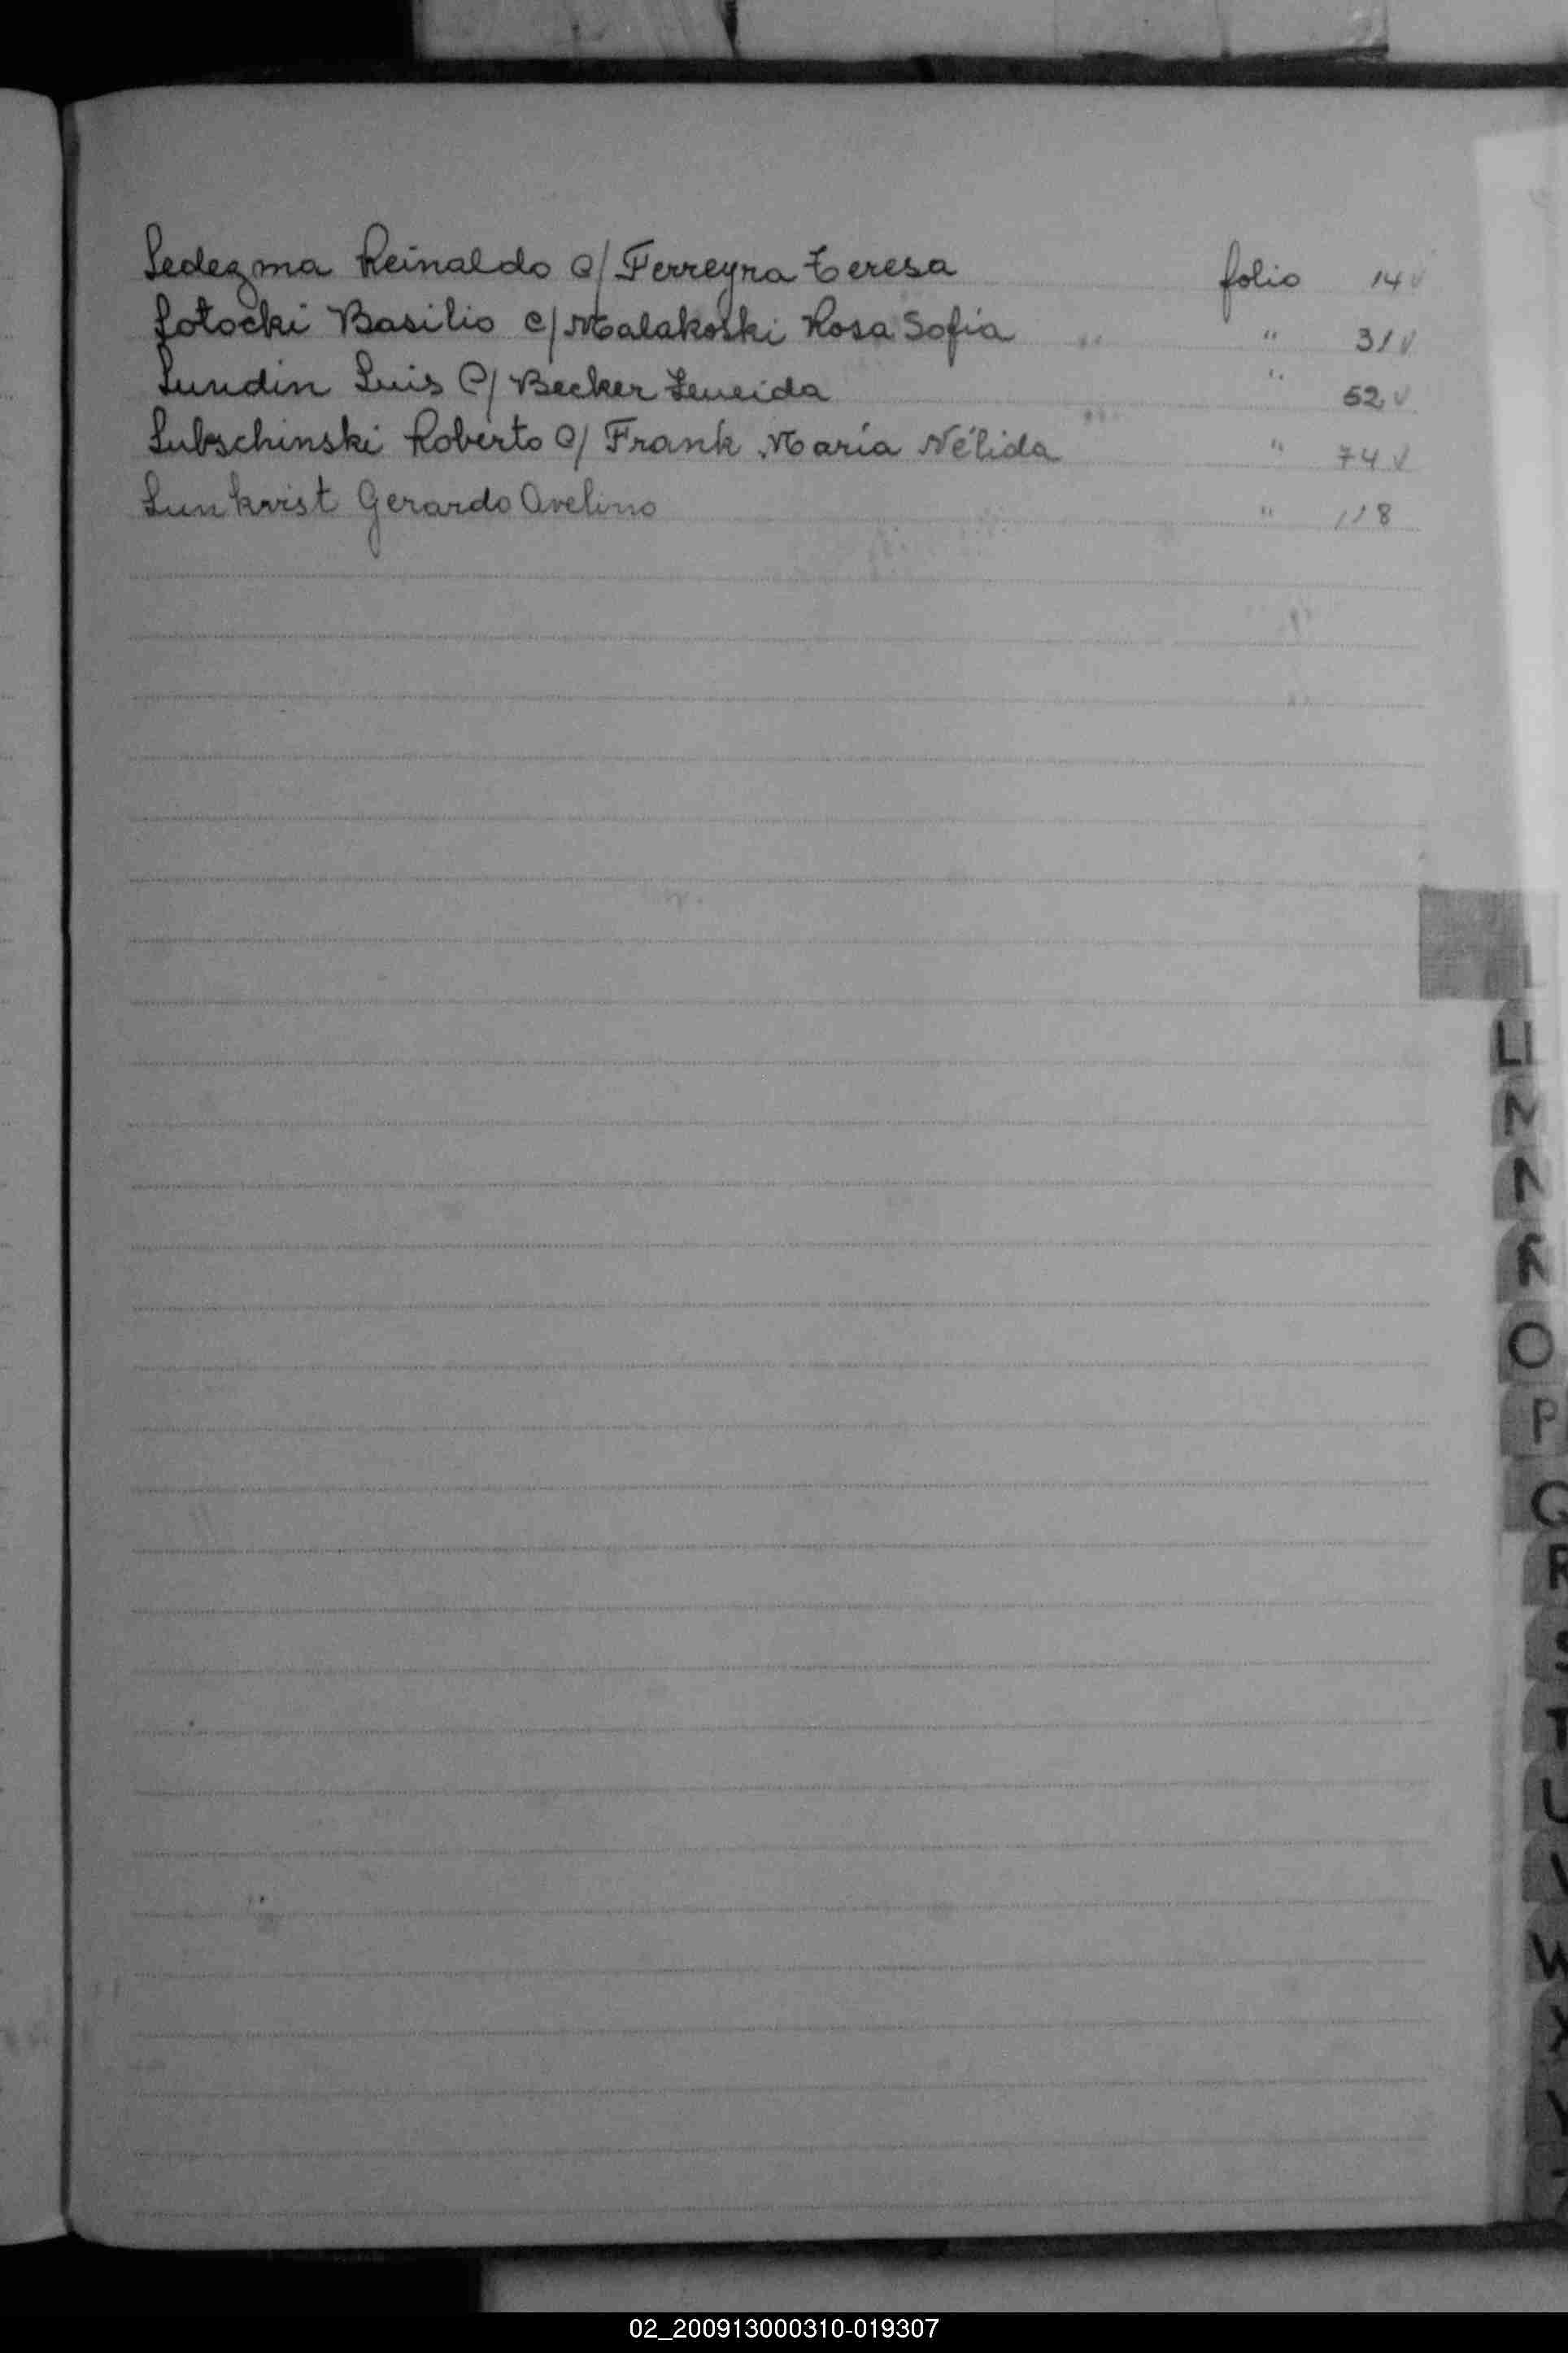 Ledezma Reinaldo c/ Ferreyra Teresa folio 14 v
Lotocki Basilio c/ Malakoski Rosa Sofía " 31 v
Lundin Luis c/ Becker Zeneida " 52 v
Lubschinski Roberto c/ Frank María Nélida " 74 v
Lunkvist Gerardo Avelino " 118
L
Ll
M
N
Ñ
O
P
Q
R
S
T
U
V
W
X
Y
Z
02_200913000310-019307